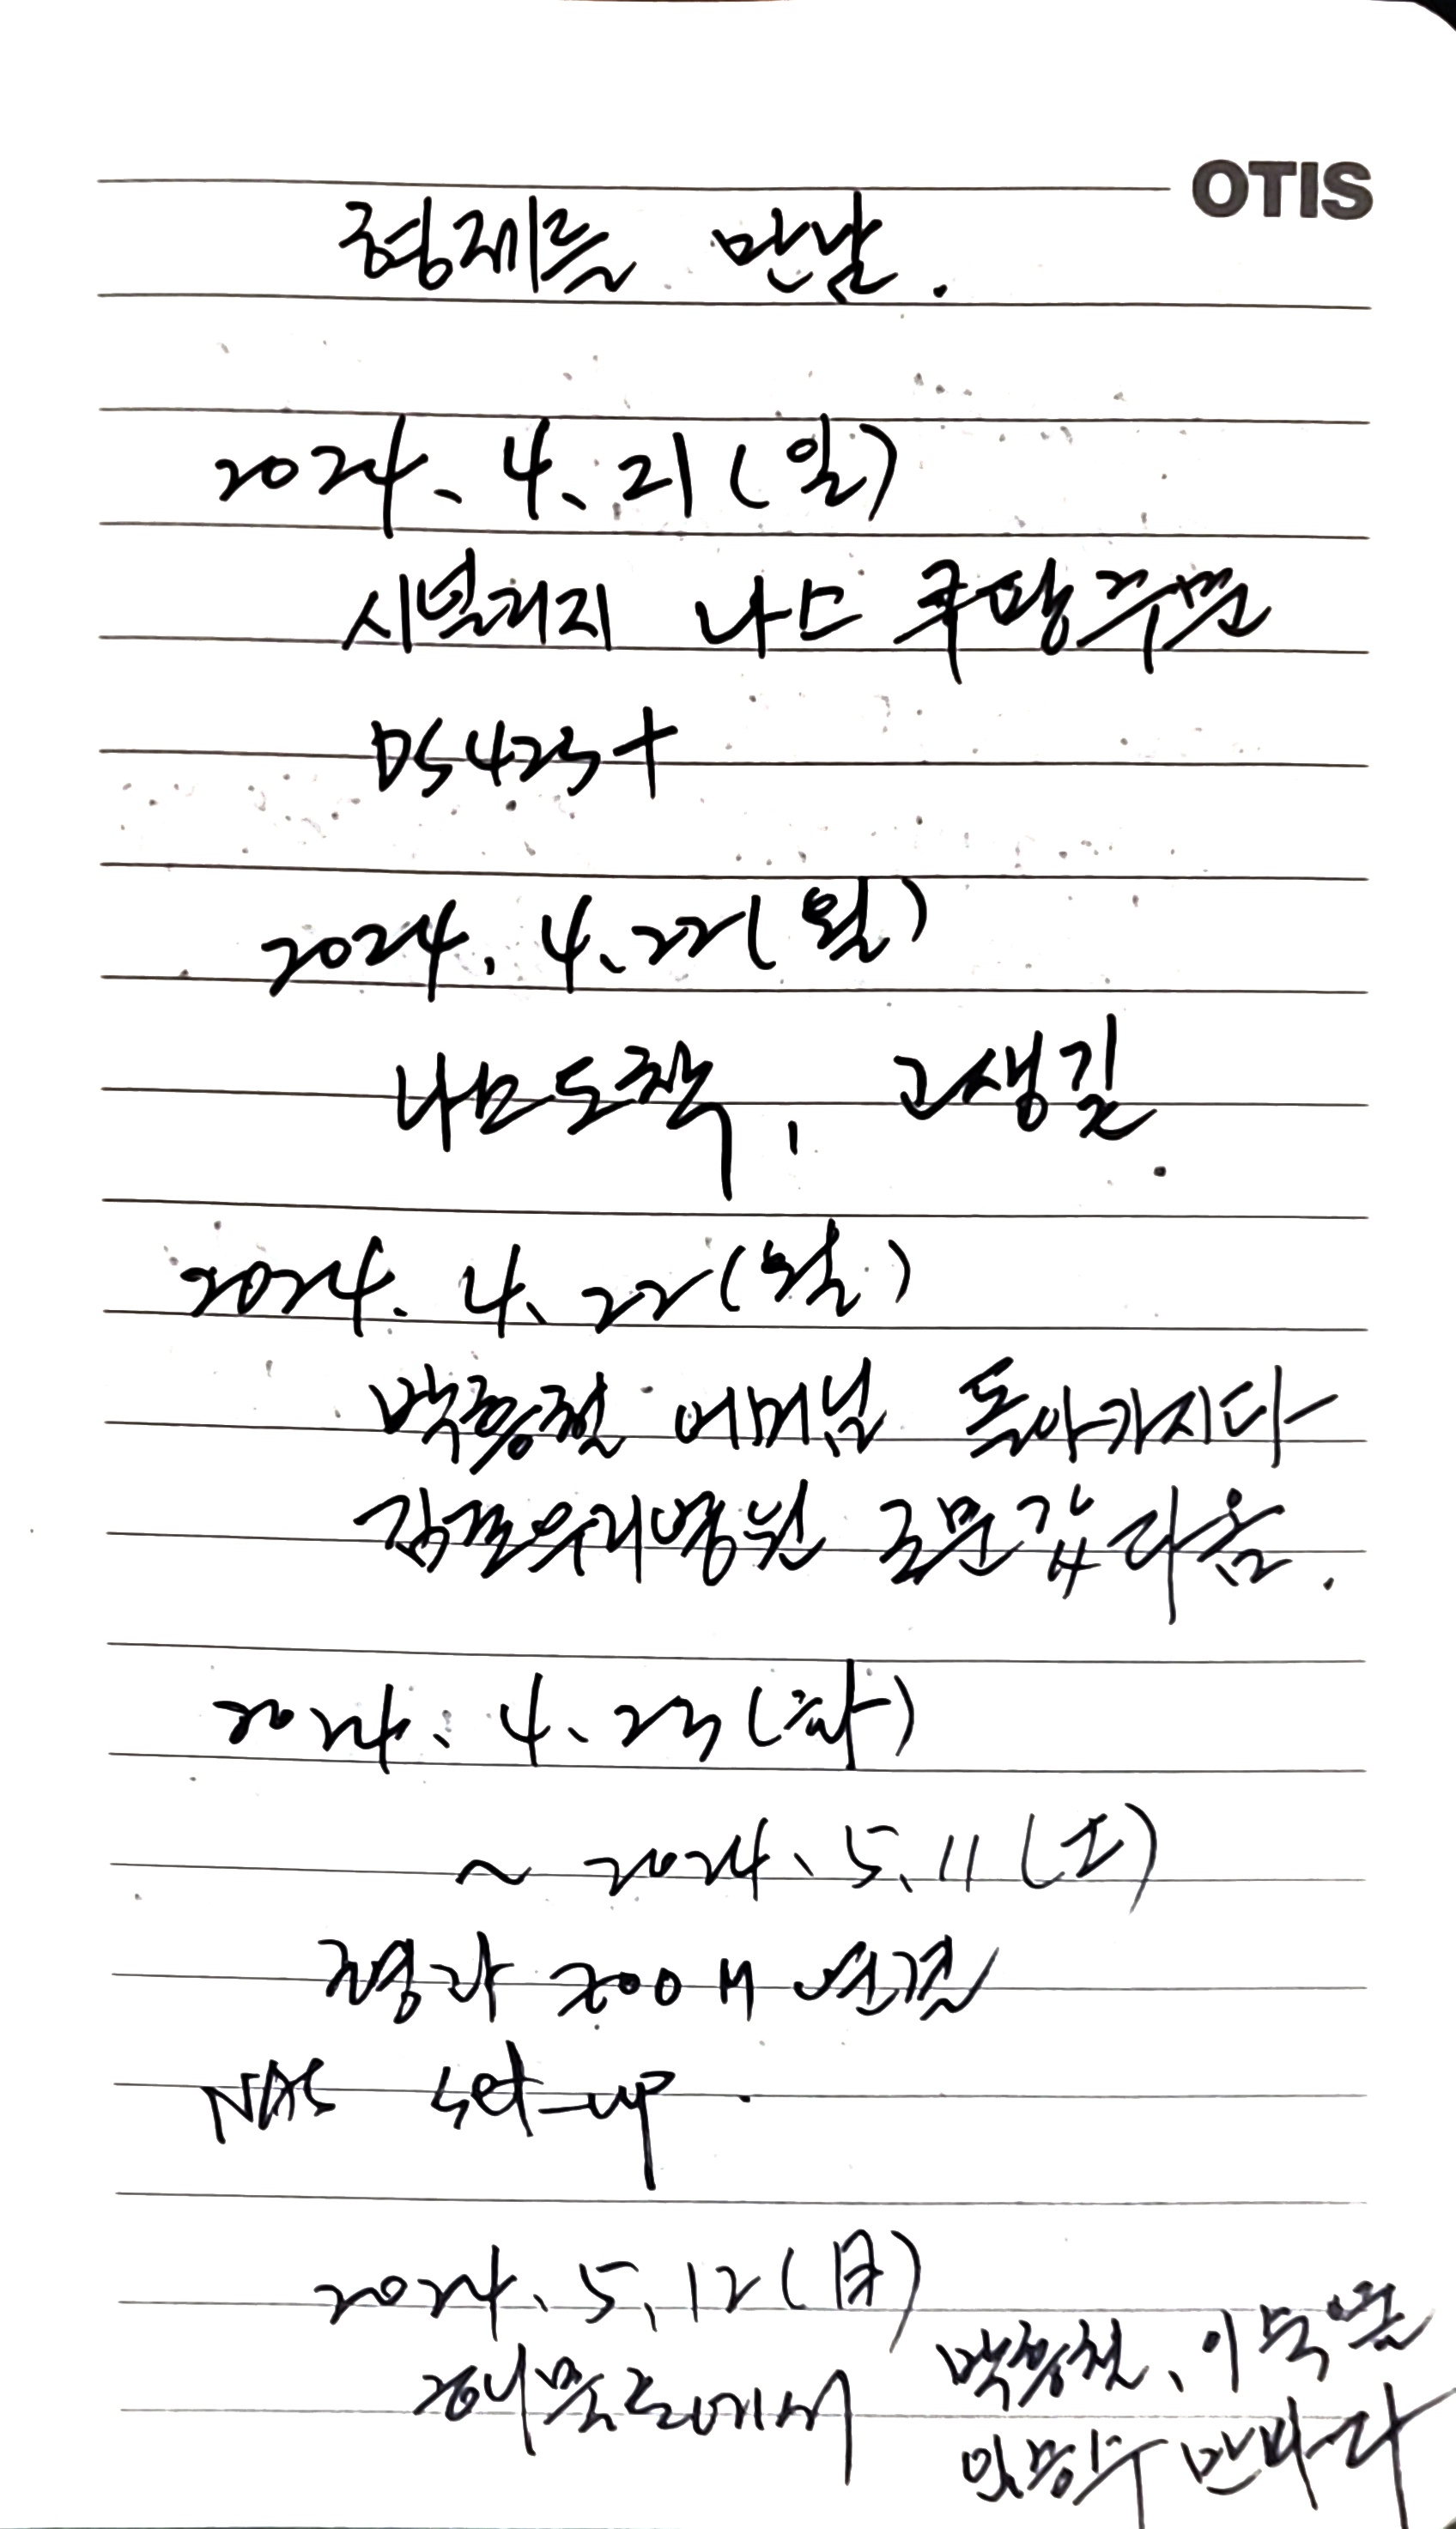 OTIS
형제들 만남.
2024. 4. 21 (일)
시놀러지 나스 쿠팡주문
DS423+
2024. 4. 22 (월)
나스도착, 고생길.
2024. 4. 22 (월)
박흥철 어머님 돌아가시다
김포우리병원 조문갔다옴.
2024. 4. 23 (화)
~ 2024. 5. 11 (土)
200M 연결
NAS set-up.
2024. 5. 12 (日)
박흥철, 이
만나다